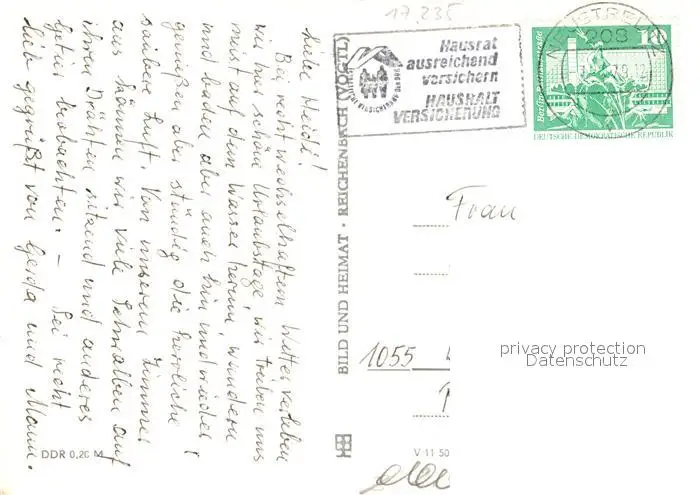 Liebe Heidi!
Bei recht wechselhaftem Wetter verleben
wir hier schöne Urlaubstage. Wir treiben uns
meist auf dem Wasser herum, wandern
und baden aber auch hin und wieder,
genießen aber ständig die herrliche
saubere Luft. Von unserem Zimmer
aus können wir viele Schwalben auf
ihren Drähten sitzend und anderes
Getier beobachten. – Sei recht
lieb gegrüßt von Gerda und Mann.
DDR 0,20 M
BILD UND HEIMAT · REICHENBACH (VOGTL)
V 11 50
17.235
Hausrat
ausreichend
versichern
HAUSHALT
VERSICHERUNG
208
10
Berlin, Rathausstraße
DEUTSCHE DEMOKRATISCHE REPUBLIK
Frau
1055
privacy protection
Datenschutz